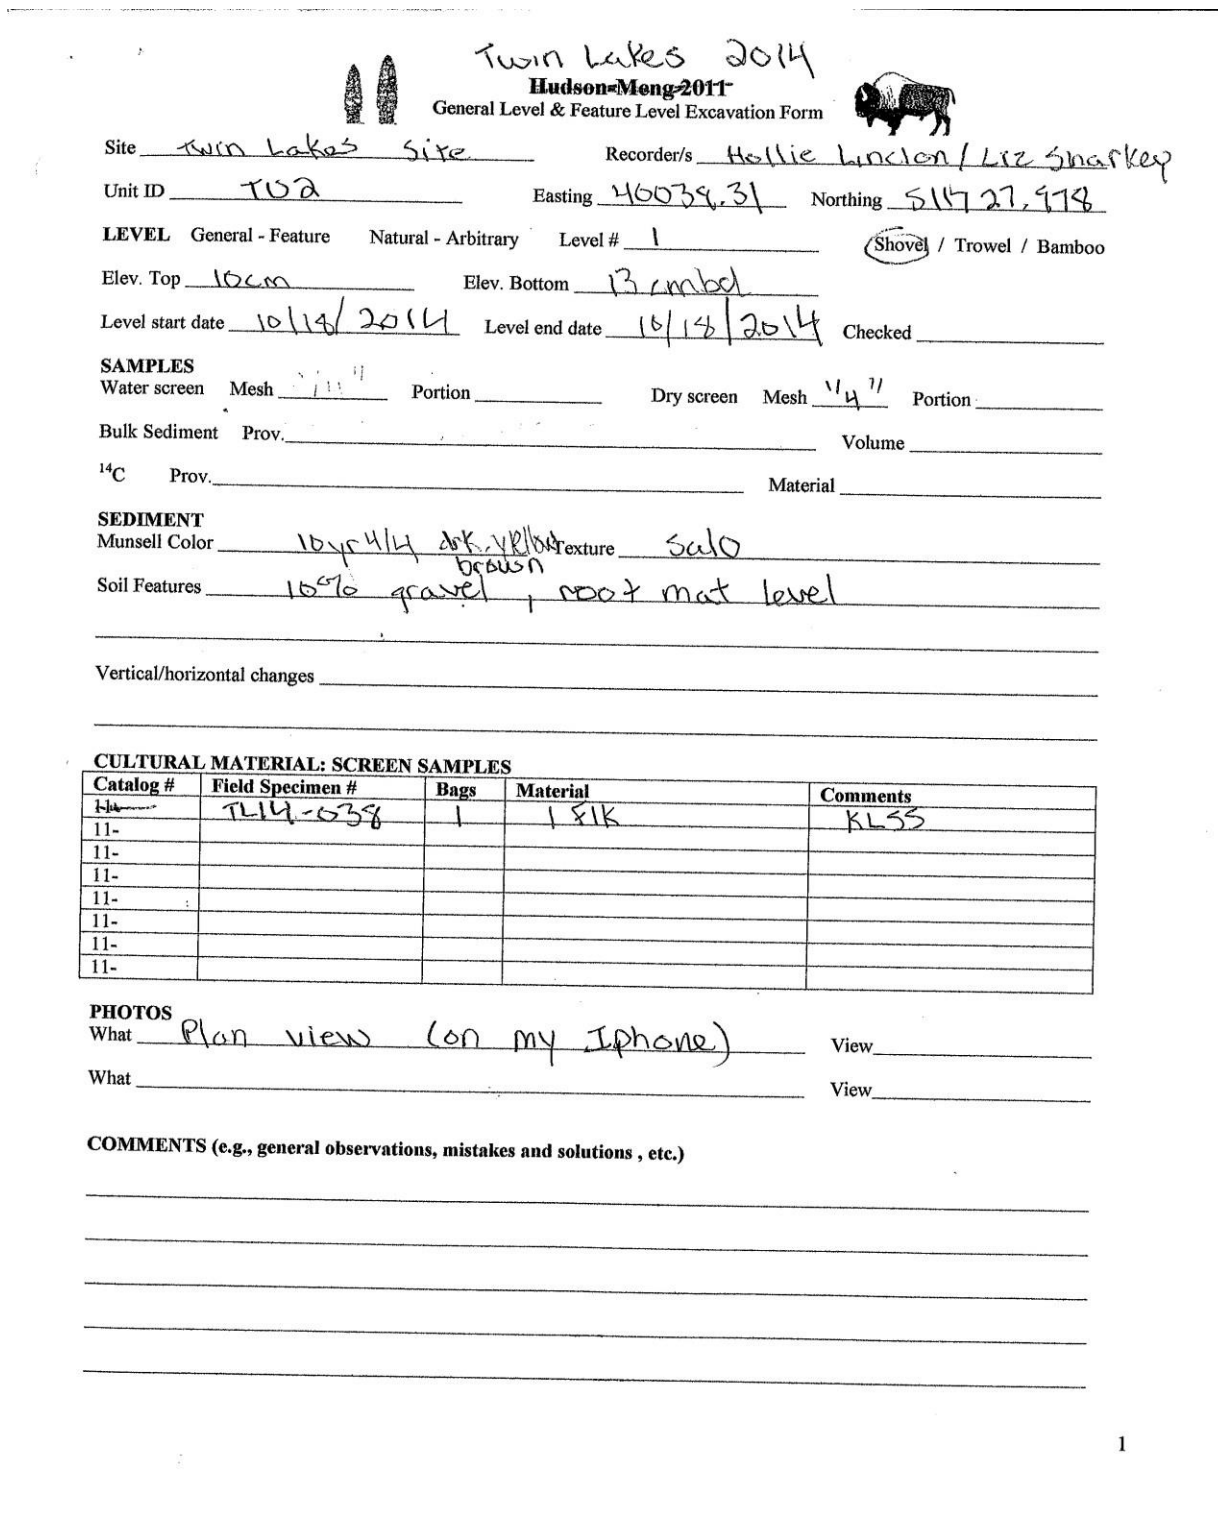 Twin Lakes 2014
Hudson-Meng 2011
General Level & Feature Level Excavation Form
Site Twin Lakes Site Recorder/s Hollie Lincoln / Liz Sharkey
Unit ID TU2 Easting Northing
LEVEL General - Feature Natural - Arbitrary Level # 1 Shovel / Trowel / Bamboo
Elev. Top 10cm Elev. Bottom 13 cmbd
Level start date 10/18/2014 Level end date 10/18/2014 Checked
SAMPLES
Water screen Mesh Portion Dry screen Mesh 1/4" Portion
Bulk Sediment Prov. Volume
14C Prov. Material
SEDIMENT
Munsell Color 10yr 4/4 drk. yellow Texture Salo
brown
Soil Features 10% gravel, root mat level
Vertical/horizontal changes
CULTURAL MATERIAL: SCREEN SAMPLES
Catalog # Field Specimen # Bags Material Comments
TL14-038 1 1 flk KLSS
11-
11-
11-
11-
11-
11-
11-
PHOTOS
What Plan view (on my Iphone) View
What View
COMMENTS (e.g., general observations, mistakes and solutions , etc.)
1